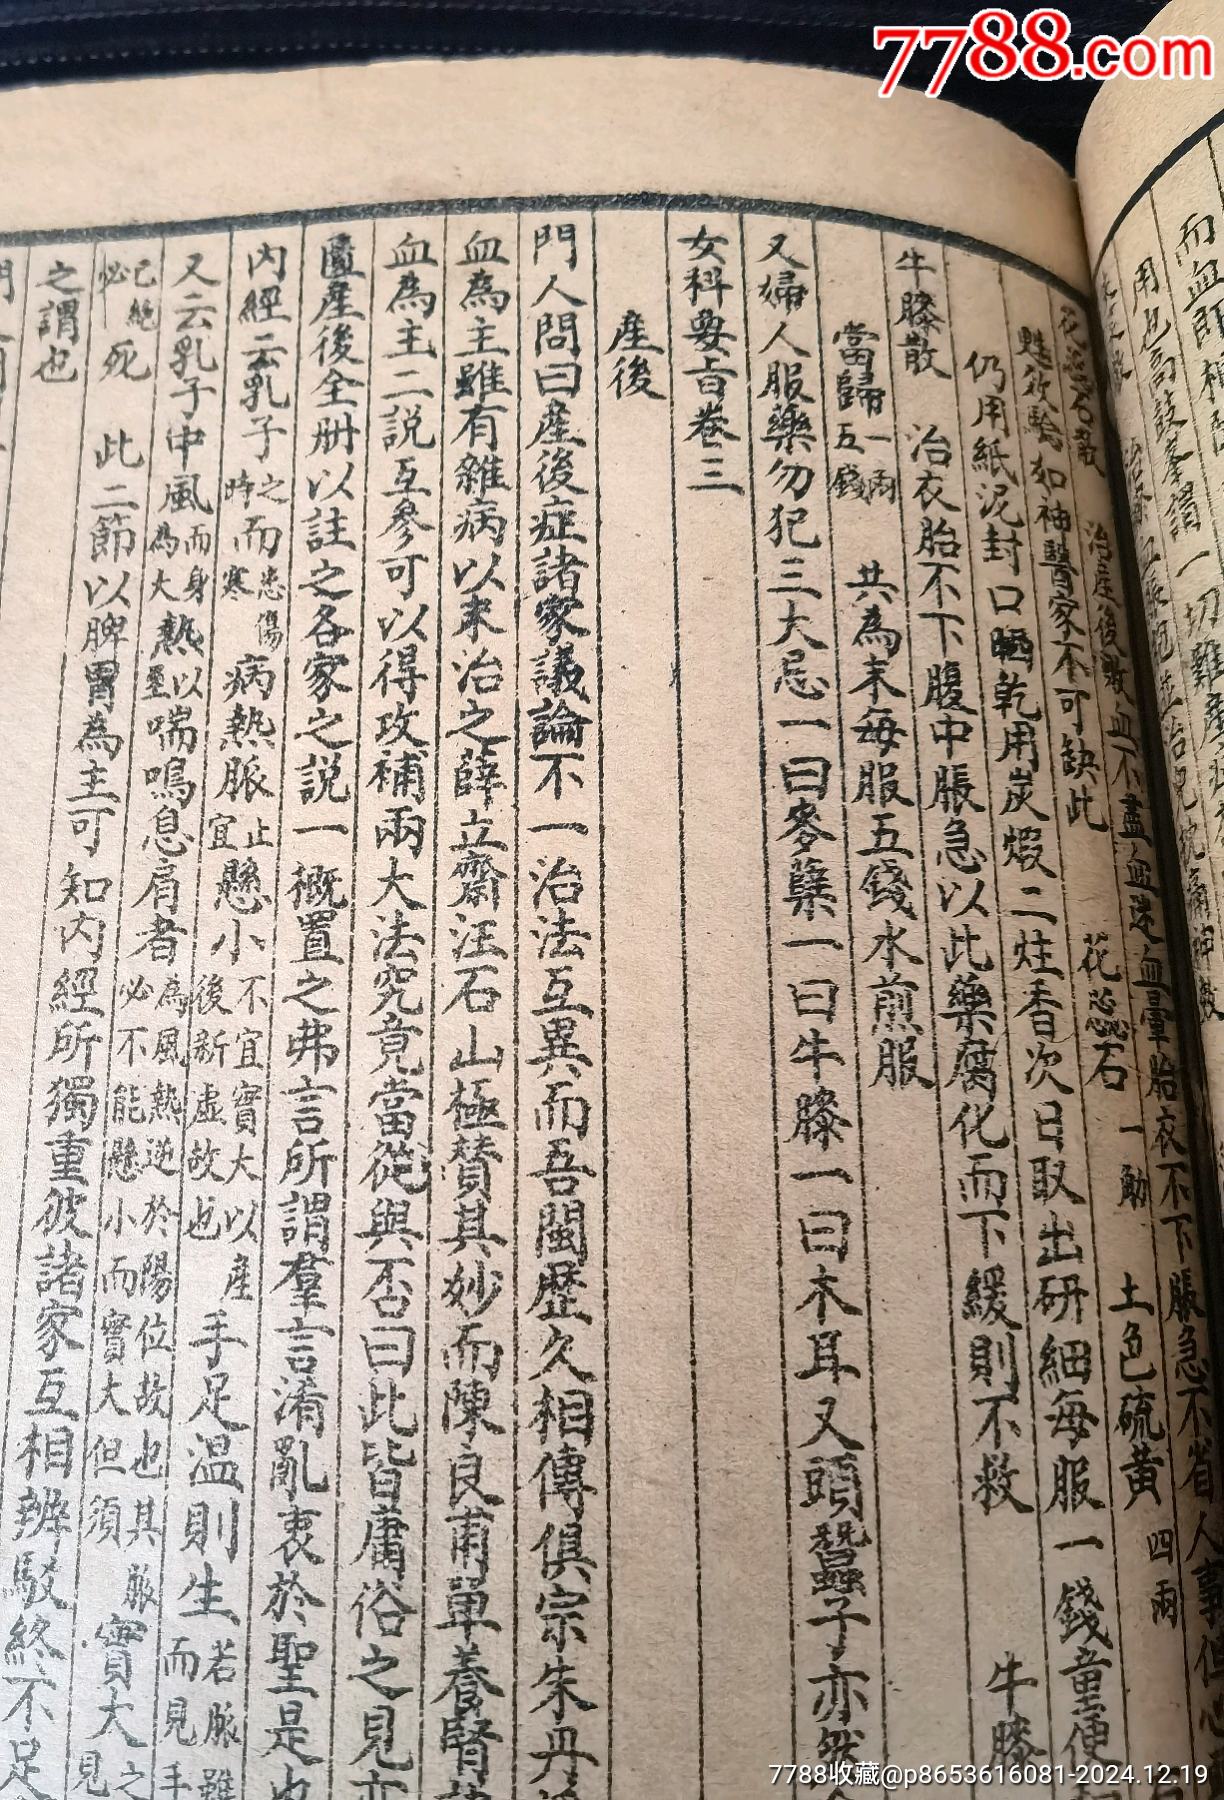 7788.com
而血
用也高鼓峯謂一切難產
花蕊石散 治產後敗血不盡血迷血暈胎衣不下脹急不省人事但
花蕊石一觔 土色硫黄四兩
甦效驗如神醫家不可缺此
仍用紙泥封口晒乾用炭煅二炷香次日取出研細每服一錢童便
牛膝散 治衣胎不下腹中脹急以此藥腐化而下緩則不救 牛膝
當歸一兩五錢 共為末每服五錢水煎服
又婦人服藥勿犯三大忌一曰麥蘗一曰牛膝一曰木耳又頭蠶子亦然
女科要旨卷三
產後
門人問曰產後症諸家議論不一治法互異而吾閩歷久相傳俱宗朱丹
血為主雖有雜病以末治之薛立齋汪石山極贊其妙而陳良甫單養賢
血為主二說互參可以得攻補兩大法究竟當從與否曰此皆庸俗之見亦
匱產後全册以註之各家之說一概置之弗言所謂羣言淆亂衷於聖是也
內經云乳子之時而患傷寒病熱脈止宜懸小不宜實大以產後新虛故也手足溫則生若脈雖而見手
又云乳子中風而身為大熱以至喘鳴息肩者為風熱逆於陽位故也其脈必不能懸小而實大但須實大之見
已絕必死 此二節以脾胃為主可知內經所獨重彼諸家互相辨駁終不足
之謂也
門
7788收藏@p8653616081-2024.12.19